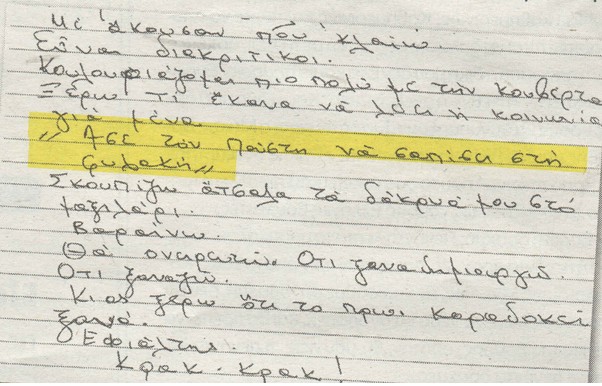 Μέ ἄκουσαν πού κλαίω.
Εἶναι διακριτικοί.
Κουλουριάζομαι πιο πολύ μέ τήν κουβέρτα
Ξέρω τί ἔκανα νά λέει ἡ κοινωνία
γιά μένα
„ Ἄσε τόν πούστη νά σαπίσει στή
φυλακή „
Σκουπίζω ἄτσαλα τά δάκρυά μου στό
μαξιλάρι.
Βαραίνω.
Θά ονειρευτώ. Οτι ξαναδημιουργώ.
Οτι ξαναζώ.
Κι ας ξέρω ὅτι το πρωι καραδοκεί
ξανά.
Ο Εφιάλτης.
Κρακ. κρακ!